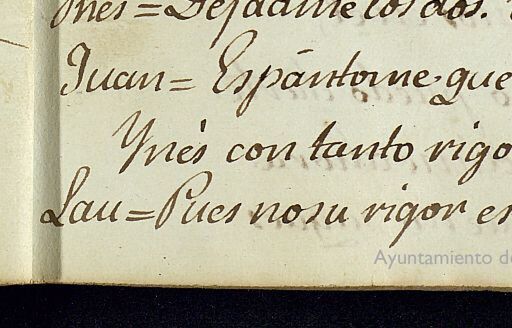 Ynes = Dejadme los dos.
Juan = Espántome que
Ynés con tanto rigo
Lau = Pues no su rigor es
Ayuntamiento de